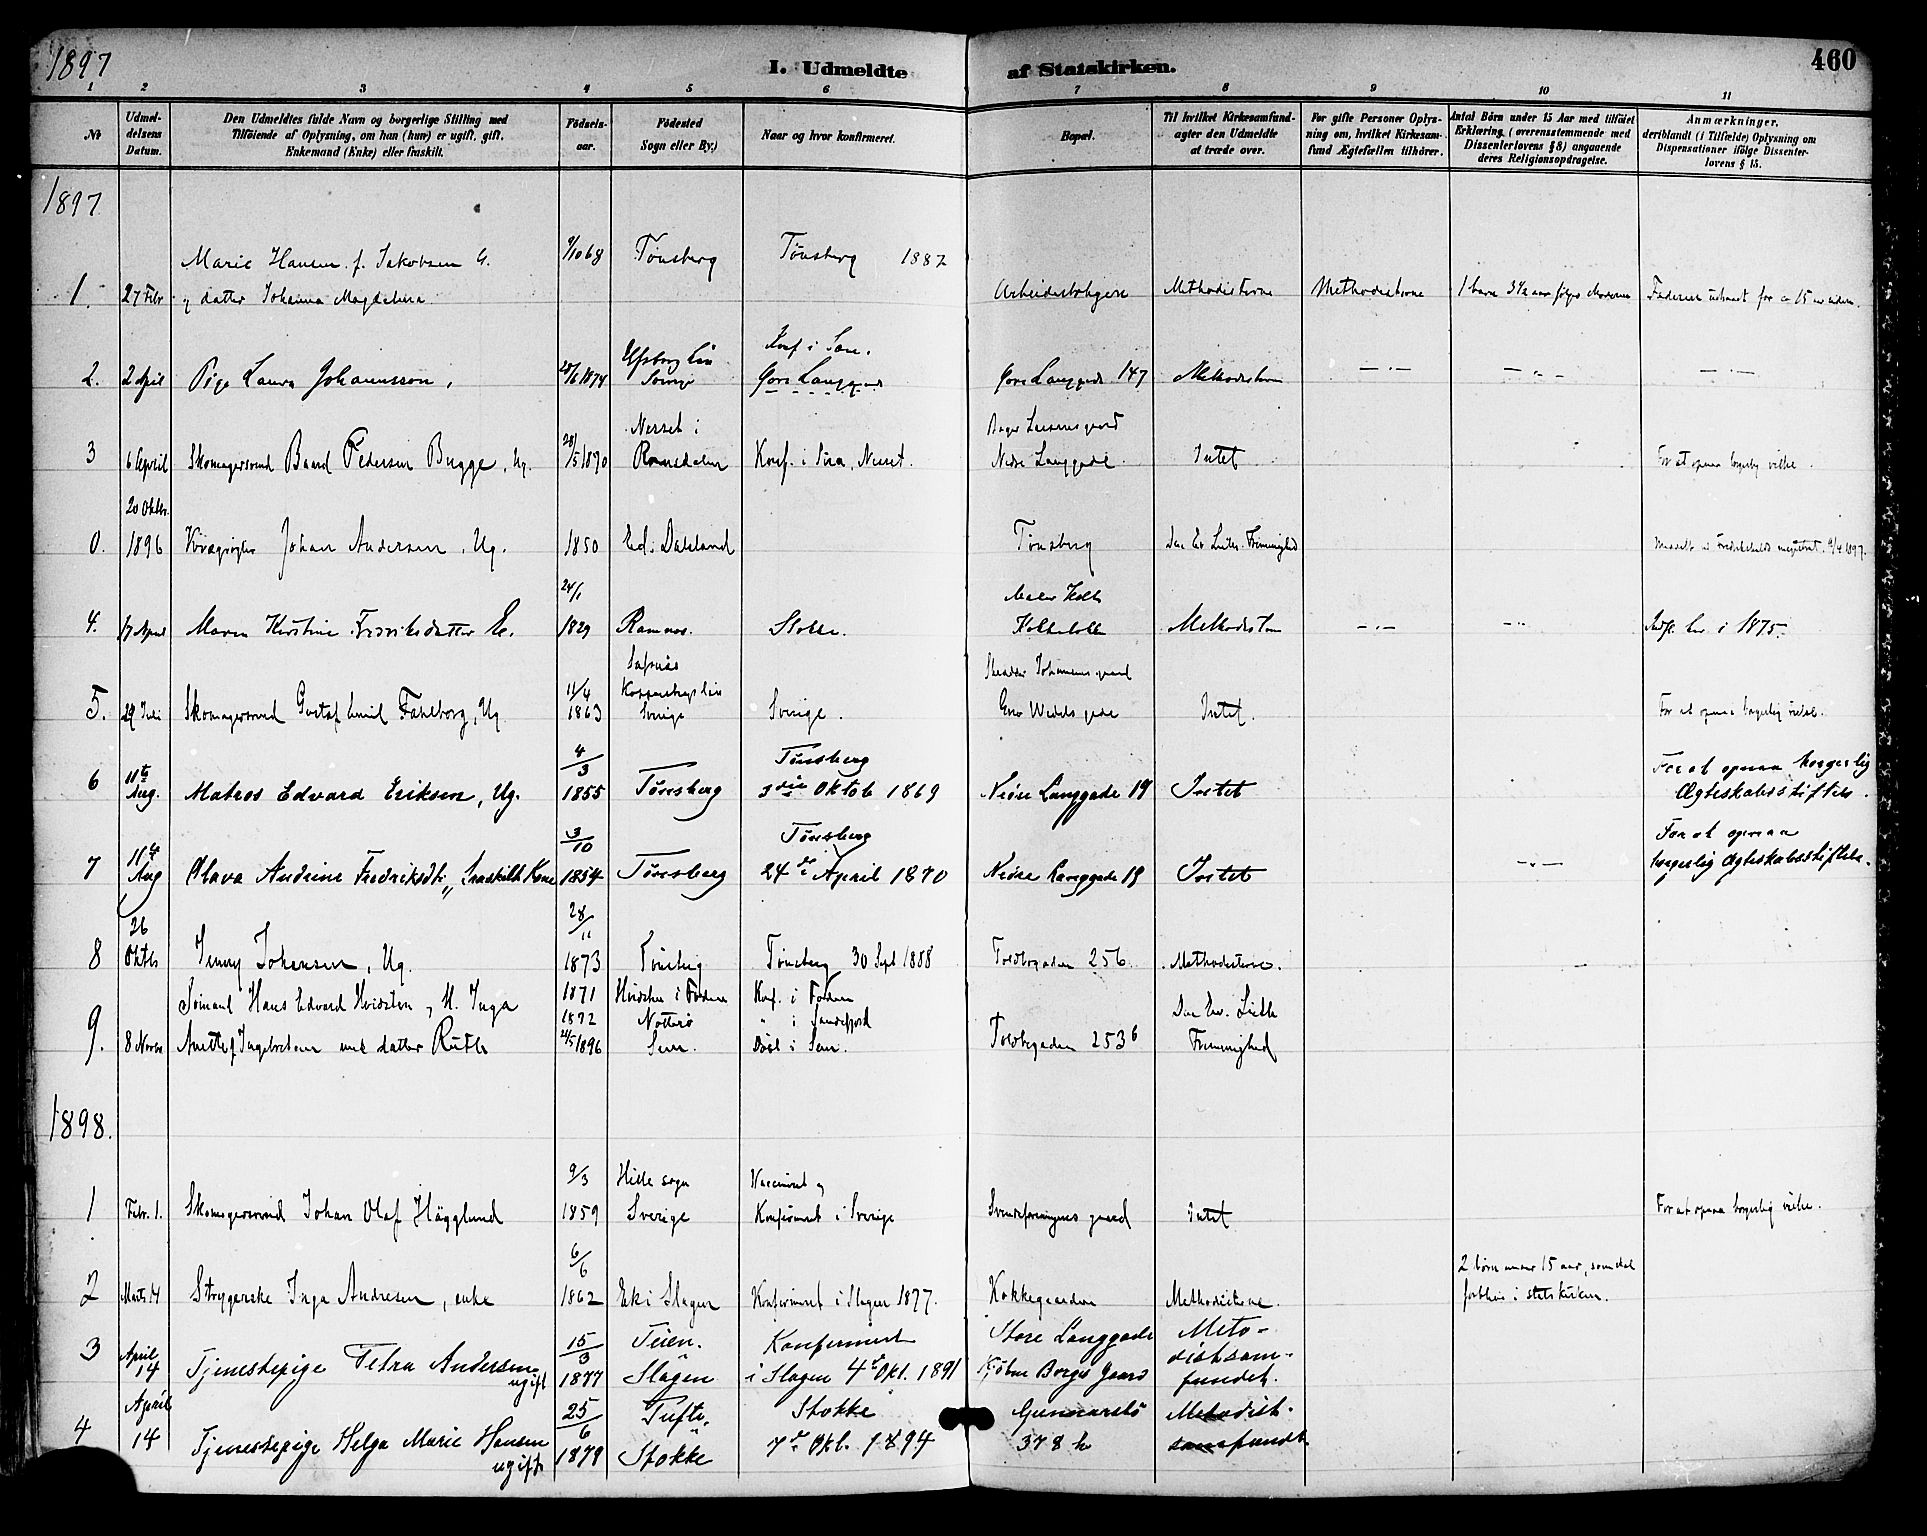 1897
I. Udmeldte af Statskirken.
460
1 2 3 4 5 6 7 8 9 10 11
No
Udmel-
delsens
Datum.
Den Udmeldtes fulde Navn og borgerlige Stilling med
Tilføiende af Oplysning, om han (hun) er ugift, gift,
Enkemand (Enke) eller fraskilt.
Fødsels-
aar.
Fødested
Sogn eller By.)
Naar og hvor konfirmeret.
Bopæl.
Til hvilket Kirkesamfund-
agter den Udmeldte
at træde over.
For gifte Personer Oplys-
ning om, hvilket Kirkesam-
fund Ægtefællen tilhører.
Antal Børn under 15 Aar med tilføiet
Erklæring, (overensstemmende med
Dissenterlovens § 8) angaaende
deres Religionsopdragelse.
Anmærkninger,
deriblandt (i Tilfælde) Oplysning om
Dispensationer ifølge Dissenter-
lovens § 15.
1897
Marie Hansen f. Jakobsen G. 9/10 68 Tønsberg Tønsberg 1887
1. 27 Febr og datter Johanna Magdalena Arbeiderboligen Methodisterne Methodisterne 1 barn 3 1/2 aar følger Moderen Faderen udmeldt for 15 aar siden.
Elfsborg Län Konf i Sem.
2. 2 April Pige Laura Johannsson, 28/6 1874 Sverige Gore Langgade Gore Langgade 147 Methodisterne — " — — " — — " —
Nesset i Bager Larsens gaard
3 6 April Skomagersvend Baard Pedersen Bugge, Ug. 28/5 1870 Romsdalen Konf. i Sira, Nesset. Nedre Langgade Intet For at opnaa borgerlig vielse.
20 Oktbr.
0. 1896 Johan Andersen, Ug. 1850 Ed i Dalsland Tønsberg Den Ev Luth. Frimenighed Fredrikshalds magistrat 9/4 1897.
24/1 Maler Holts
4. 17 April Maren Kirstine Fredriksdatter E. 1829 Ramnes. Stokke. Methodisterne — " — — " — Indfl. her i 1875.
Säfsnäs
11/4 Kopparbergs län Johannesens gaard
5. 29 Juli Skomagersvend Gustaf Emil Fahlborg, Ug. 1863 Sverige Sverige. Grev Wedels gade Intet. For at opnaa borgerlig vielse.
11te 4/3 Tønsberg For at opnaa borgerlig
6 Aug. Matros Edvard Eriksen, Ug. 1855 Tønsberg 3die Oktob 1869 Nedre Langgade 19 Intet Ægteskabsstiftelse.
11te 3/10 Tønsberg For at opnaa
7 Aug Olava Andrine Fredriksdtr, fraskilt Kone 1854 Tønsberg 24de April 1870 Nedre Langgade 19 Intet — " — borgerlig Ægteskabsstiftelse.
26 28/11
8 Oktbr Jenny Johansen, Ug. 1873 Tønsberg Tønsberg 30 Sept 1888 Toldbogaden 256. Methodisterne.
Sømand Hans Edvard Hvidsten, H. Inga 1871 Hvidsten i Fodene Konf. i Fodene Den Ev. Luth
1872 Nøtterø " i Sandefjord
9. 8 Novbr Anette f Ingebretsen med datter Ruth 21/5 1896 Sem. Døbt i Sem. Toldbogaden 253 b Frimenighed
1898.
9/3 Hille sogn Vaccineret og
1 Febr. 1. Skomagersvend Johan Olaf Hägglund 1859 Sverige Konfirmeret i Sverige Svendeforeningens gaard Intet For at opnaa borgerlig vielse.
6/6 2 børn under 15 aar, som skal
2 Marts 14 Strygerske Inga Andresen, enke 1862 Eik i Slagen Konfirmeret i Slagen 1877. Kokkegaarden Methodisterne. forblive i statskirken.
15/3 Teien. Konfirmeret Store Langgade Meto-
distsam-
3 April 14 Tjenestepige Petra Andersen ugift 1877 Slagen i Slagen 4de Okt. 1891 Kjøbm Borges Gaard fundet.
April 25/6 Tufte. Stokke Gunnarsbø Metodist-
4 14 Tjenestepige Helga Marie Hansen ugift 1879 Stokke 7de Okt. 1894 378 b samfundet.